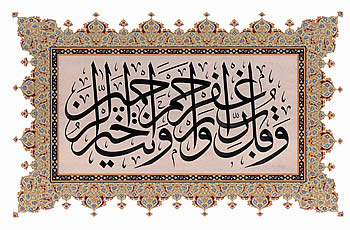 وَقُل رَّبِّ اغْفِرْ وَارْحَمْ وَأَنتَ خَيْرُ الرَّاحِمِينَ